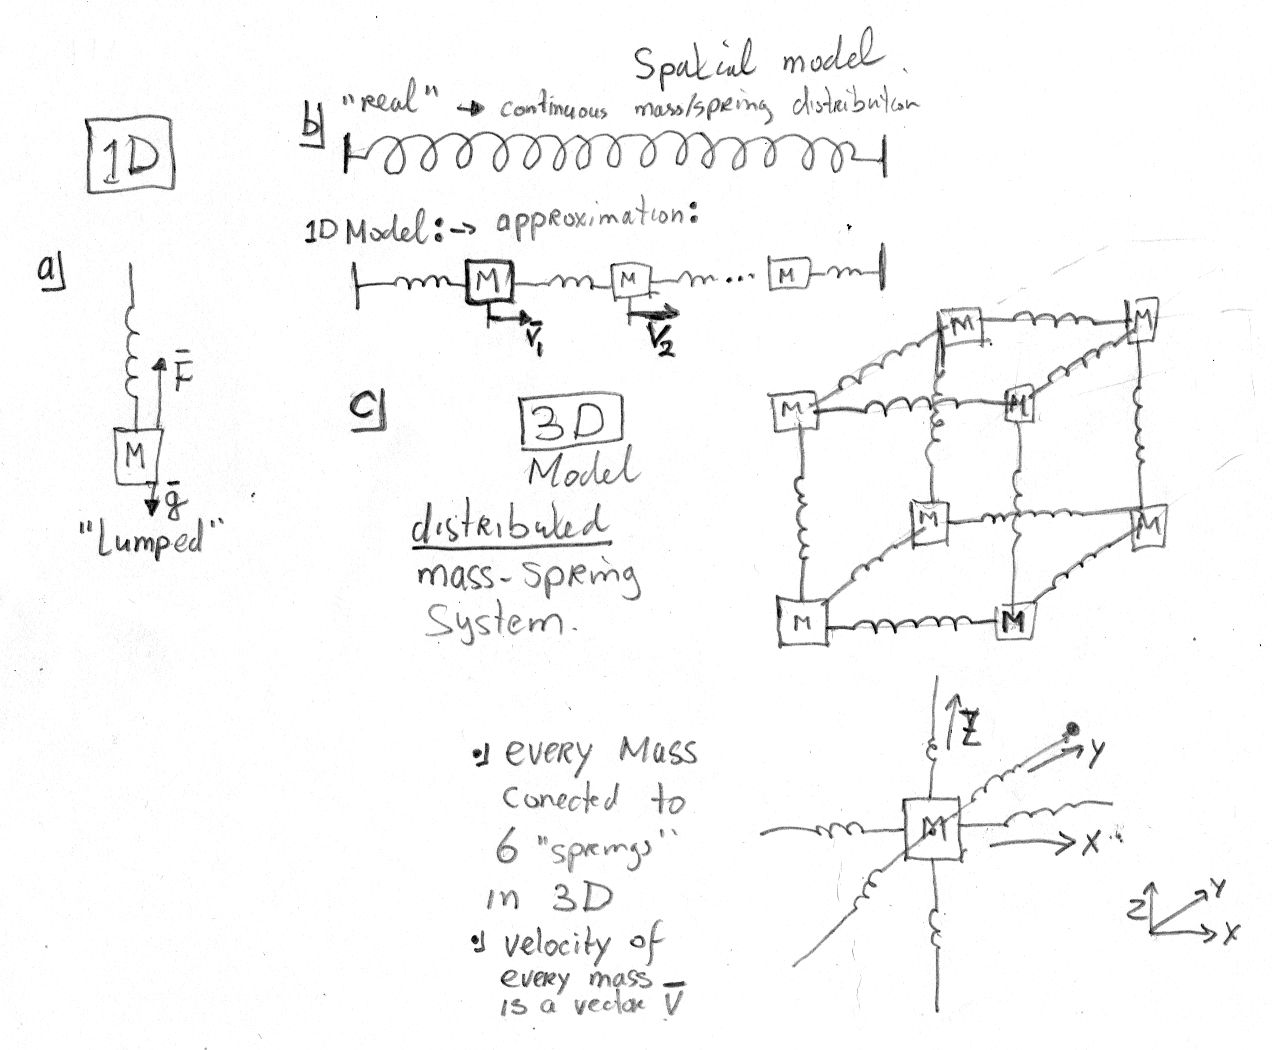 1D
a)
F̄
M
ḡ
"Lumped"
Spatial model.
b) "real" → continuous mass/spring distribution
1D Model: → approximation:
M M ... M
V̄1 V̄2
c)
3D
Model
distributed
mass-spring
System.
M M
M M
M M
M M
• every Mass
conected to
6 "springs"
in 3D
• velocity of
every mass
is a vector V̄
Z
Y
M
X
Z Y
X